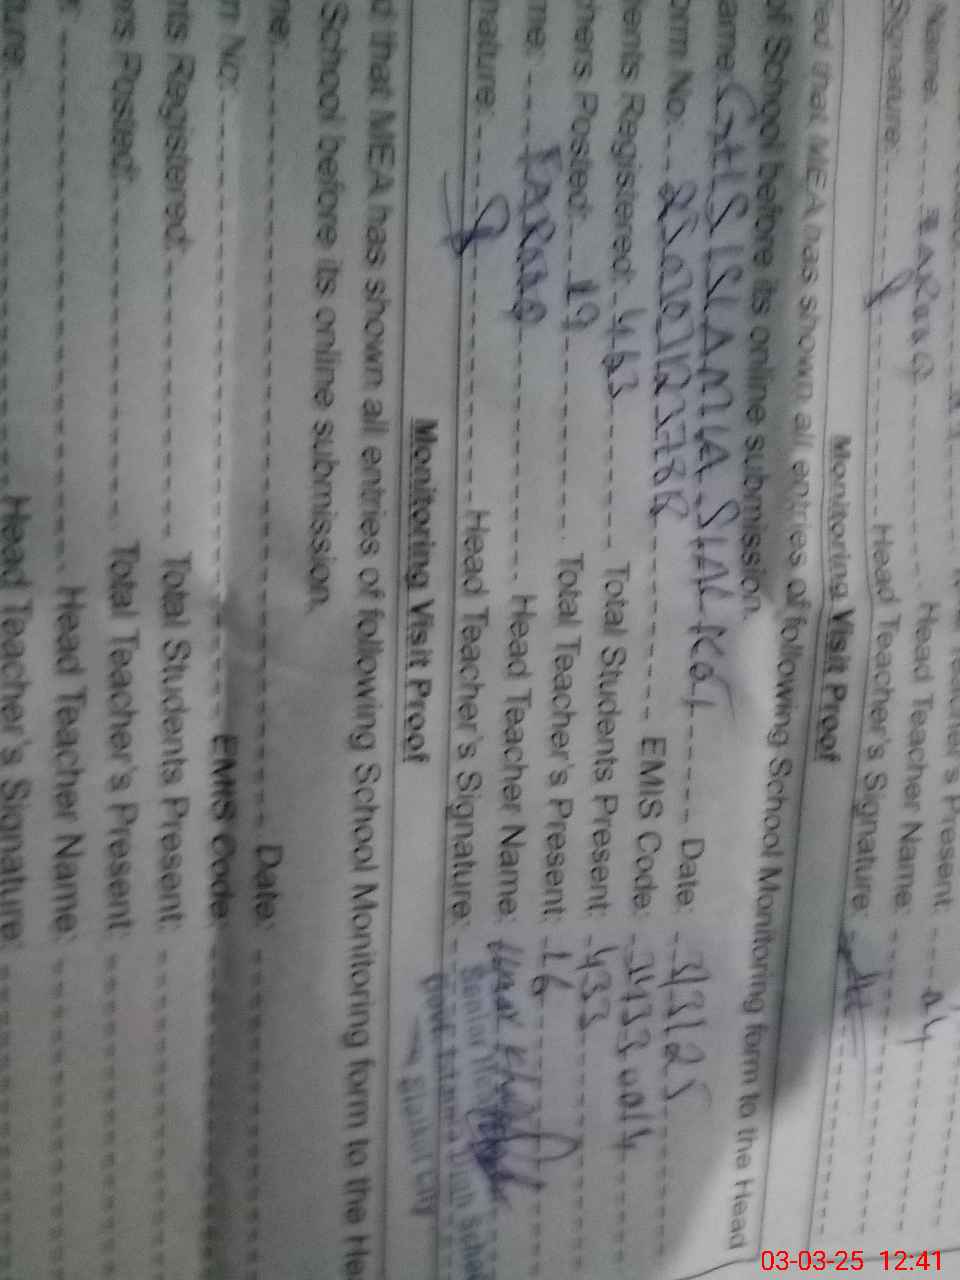 Name: FAROOQ Head Teacher Name:
Signature: Head Teacher's Signature:
Monitoring Visit Proof
that MEA has shown all entries of following School Monitoring form to the Head
of School before its online submission.
ame: GHS ISLAMIA SIALKOT Date: 3/3/25
orm No: EMIS Code:
ents Registered: 463 Total Students Present: 433
hers Posted: 19 Total Teacher's Present: 16
me: FAROOQ Head Teacher Name:
nature: Head Teacher's Signature:
Monitoring Visit Proof
d that MEA has shown all entries of following School Monitoring form to the He
School before its online submission.
me: Date:
m No: EMIS Code:
nts Registered: Total Students Present:
rs Posted: Total Teacher's Present:
Head Teacher Name:
ture: Head Teacher's Signature:
03-03-25 12:41